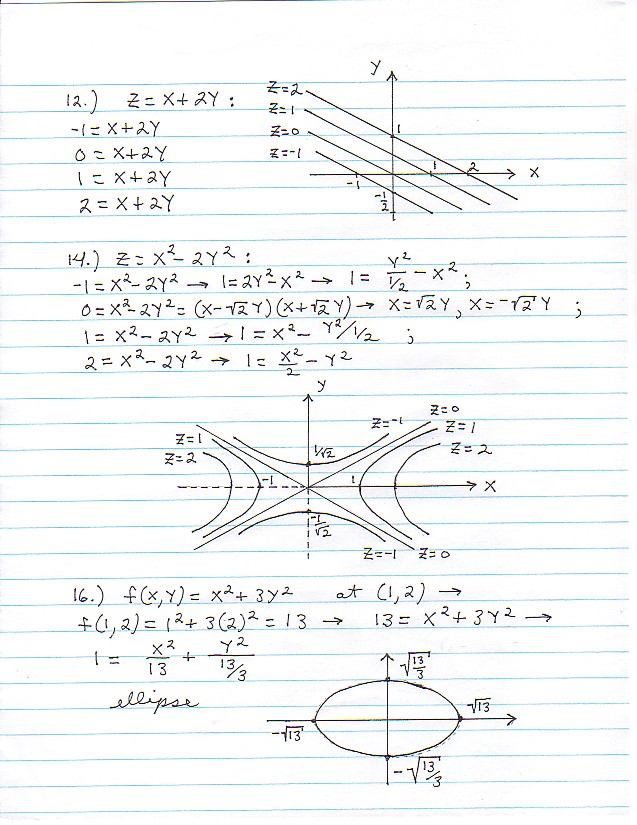 12.) Z = X + 2Y :
-1 = X + 2Y
0 = X + 2Y
1 = X + 2Y
2 = X + 2Y
Y
Z=2
Z=1
Z=0
Z=-1
1
-1
1
2
X
-1/2
14.) Z = X² - 2Y² :
-1 = X² - 2Y² → 1 = 2Y² - X² → 1 = Y²/1/2 - X² ;
0 = X² - 2Y² = (X - √2 Y)(X + √2 Y) → X = √2 Y , X = -√2 Y ;
1 = X² - 2Y² → 1 = X² - Y²/1/2 ;
2 = X² - 2Y² → 1 = X²/2 - Y²
Y
Z=-1
Z=0
Z=1
Z=1
Z=2
Z=2
1/√2
-1
1
X
-1/√2
Z=-1
Z=0
16.) f(X,Y) = X² + 3Y² at (1,2) →
f(1,2) = 1² + 3(2)² = 13 → 13 = X² + 3Y² →
1 = X²/13 + Y²/13/3
ellipse
√13/3
√13
-√13
-√13/3